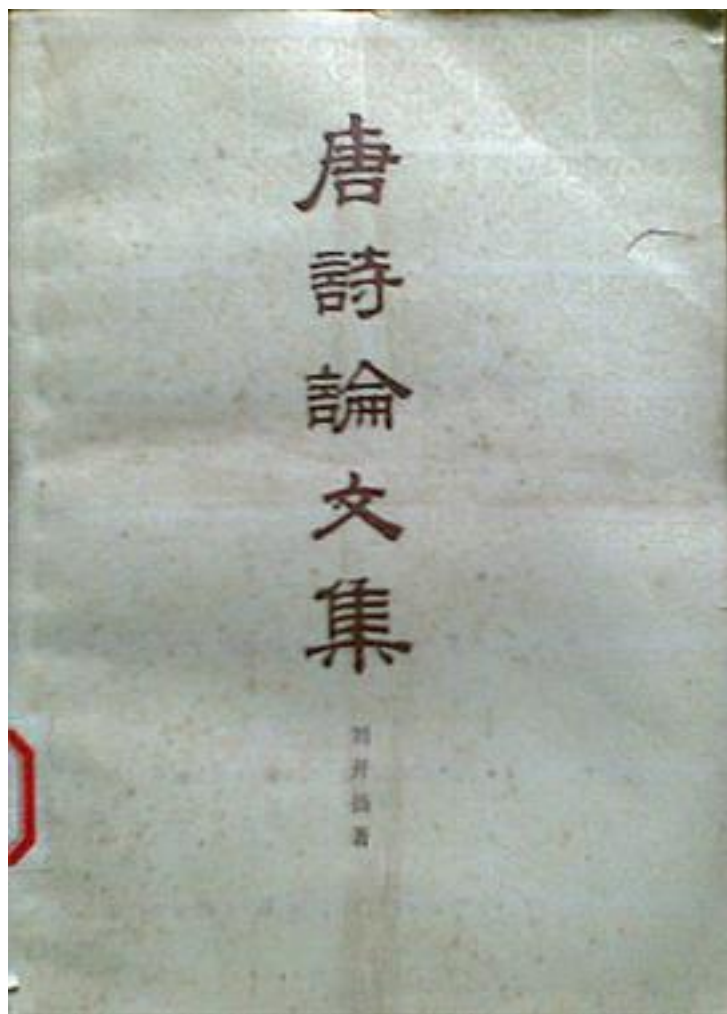 唐詩論文集
刘开扬著